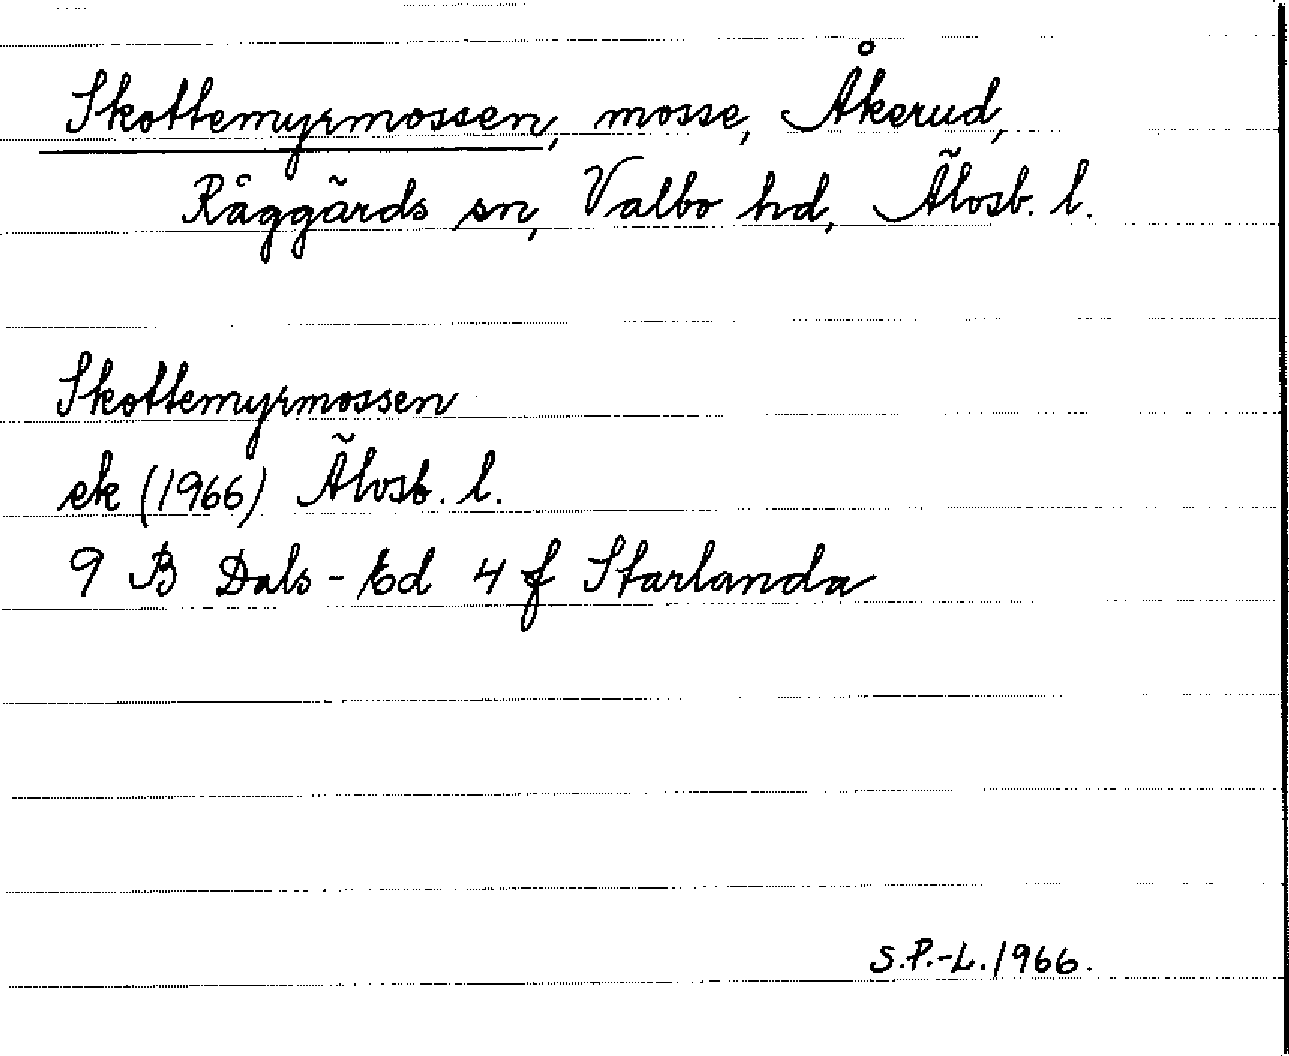 Skottemyrmossen, mosse, Åkerud,
Råggärds sn, Valbo hd, Älvsb. l.
Skottemyrmossen
ek (1966) Älvsb. l.
9 B Dals-Ed 4 f Starlanda
S.P.-L. 1966.